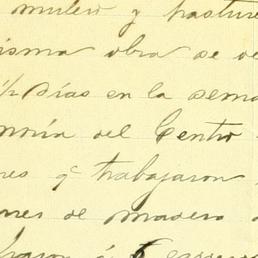 mulero y pasture
isma obra se ve
1/2 días en la sema
noría del Centro
res q trabajaron
nes de madera
braron á 6